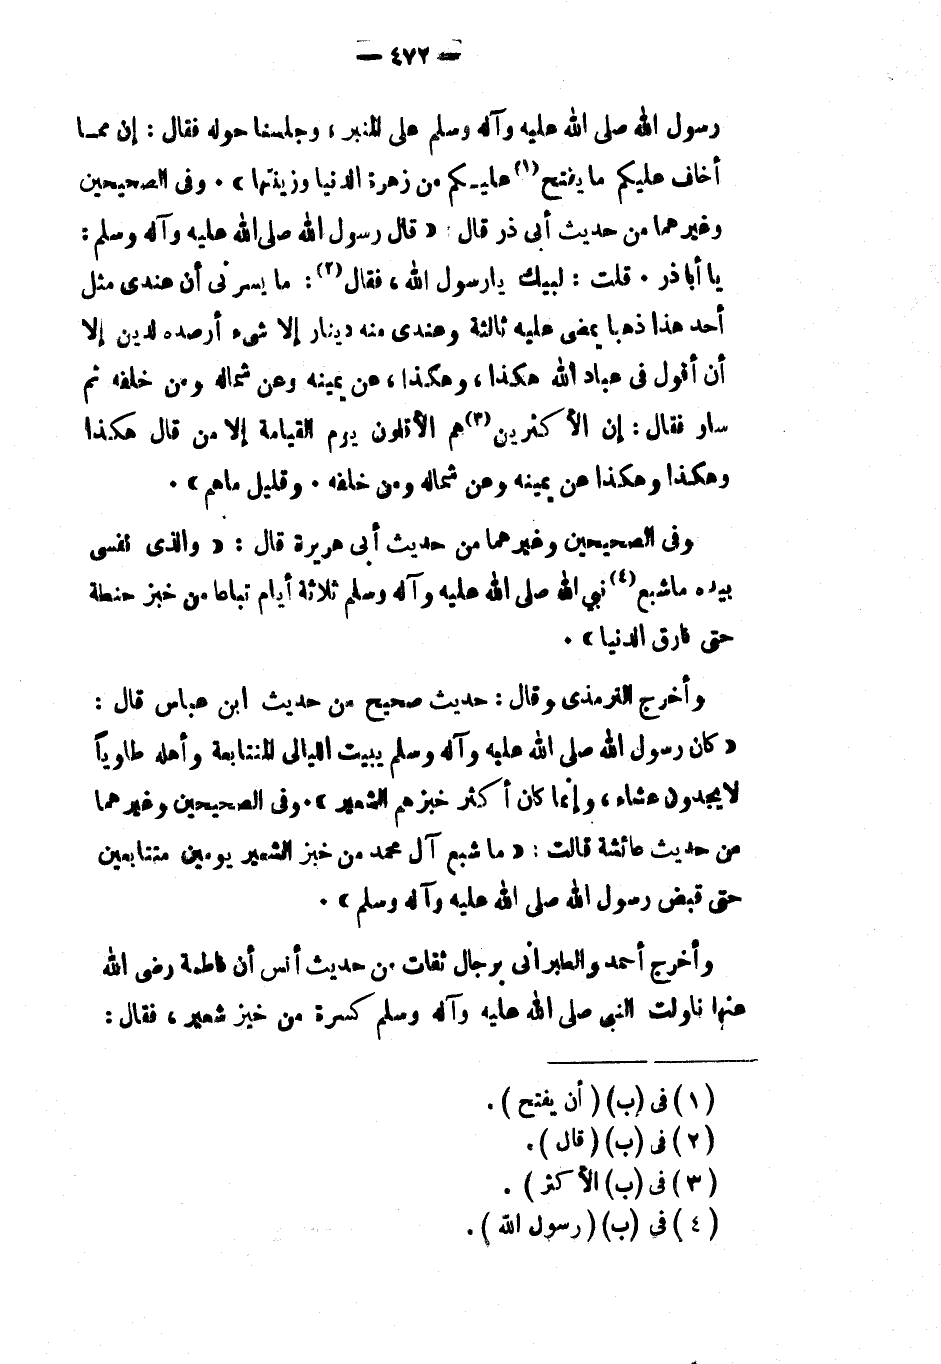 — ٤٧٢ —
رسول الله صلى الله عليه وآله وسلم على المنبر ، وجلسنا حوله فقال : إن ممـا
أخاف عليكم ما يفتح (١) عليـكم من زهرة الدنيا وزينتها » . وفى الصحيحين
وغيرهما من حديث أبى ذر قال : « قال رسول الله صلى الله عليه وآله وسلم :
يا أباذر . قلت : لبيك يارسول الله ، فقال (٢) : ما يسرنى أن عندى مثل
أحد هذا ذهبا يمضى عليه ثالثة وعندى منه دينار إلا شىء أرصده لدين إلا
أن أقول فى عباد الله هكذا ، وهكذا ، عن يمينه وعن شماله ومن خلفه ثم
سار فقال : إن الأكثرين (٣) هم الأقلون يوم القيامة إلا من قال هكذا
وهكذا وهكذا عن يمينه وعن شماله ومن خلفه . وقليل ماهم » .
وفى الصحيحين وغيرهما من حديث أبى هريرة قال : « والذى نفسى
بيده ماشبع (٤) نبي الله صلى الله عليه وآله وسلم ثلاثة أيام تباعا من خبز حنطة
حتى فارق الدنيا » .
وأخرج الترمذى وقال : حديث صحيح من حديث ابن عباس قال :
« كان رسول الله صلى الله عليه وآله وسلم يبيت الليالى المتتابعة وأهله طاوياً
لايجدون عشاء ، وإنما كان أكثر خبزهم الشعير » . وفى الصحيحين وغيرهما
من حديث عائشة قالت : « ما شبع آل محمد من خبز الشعير يومين متتابعين
حتى قبض رسول الله صلى الله عليه وآله وسلم » .
وأخرج أحمد والطبرانى برجال ثقات من حديث أنس أن فاطمة رضى الله
عنها ناولت النبى صلى الله عليه وآله وسلم كسرة من خبز شعير ، فقال :
( ١ ) فى (ب) ( أن يفتح ) .
( ٢ ) فى (ب) ( قال ) .
( ٣ ) فى (ب) الأكثر ) .
( ٤ ) فى (ب) ( رسول الله ) .